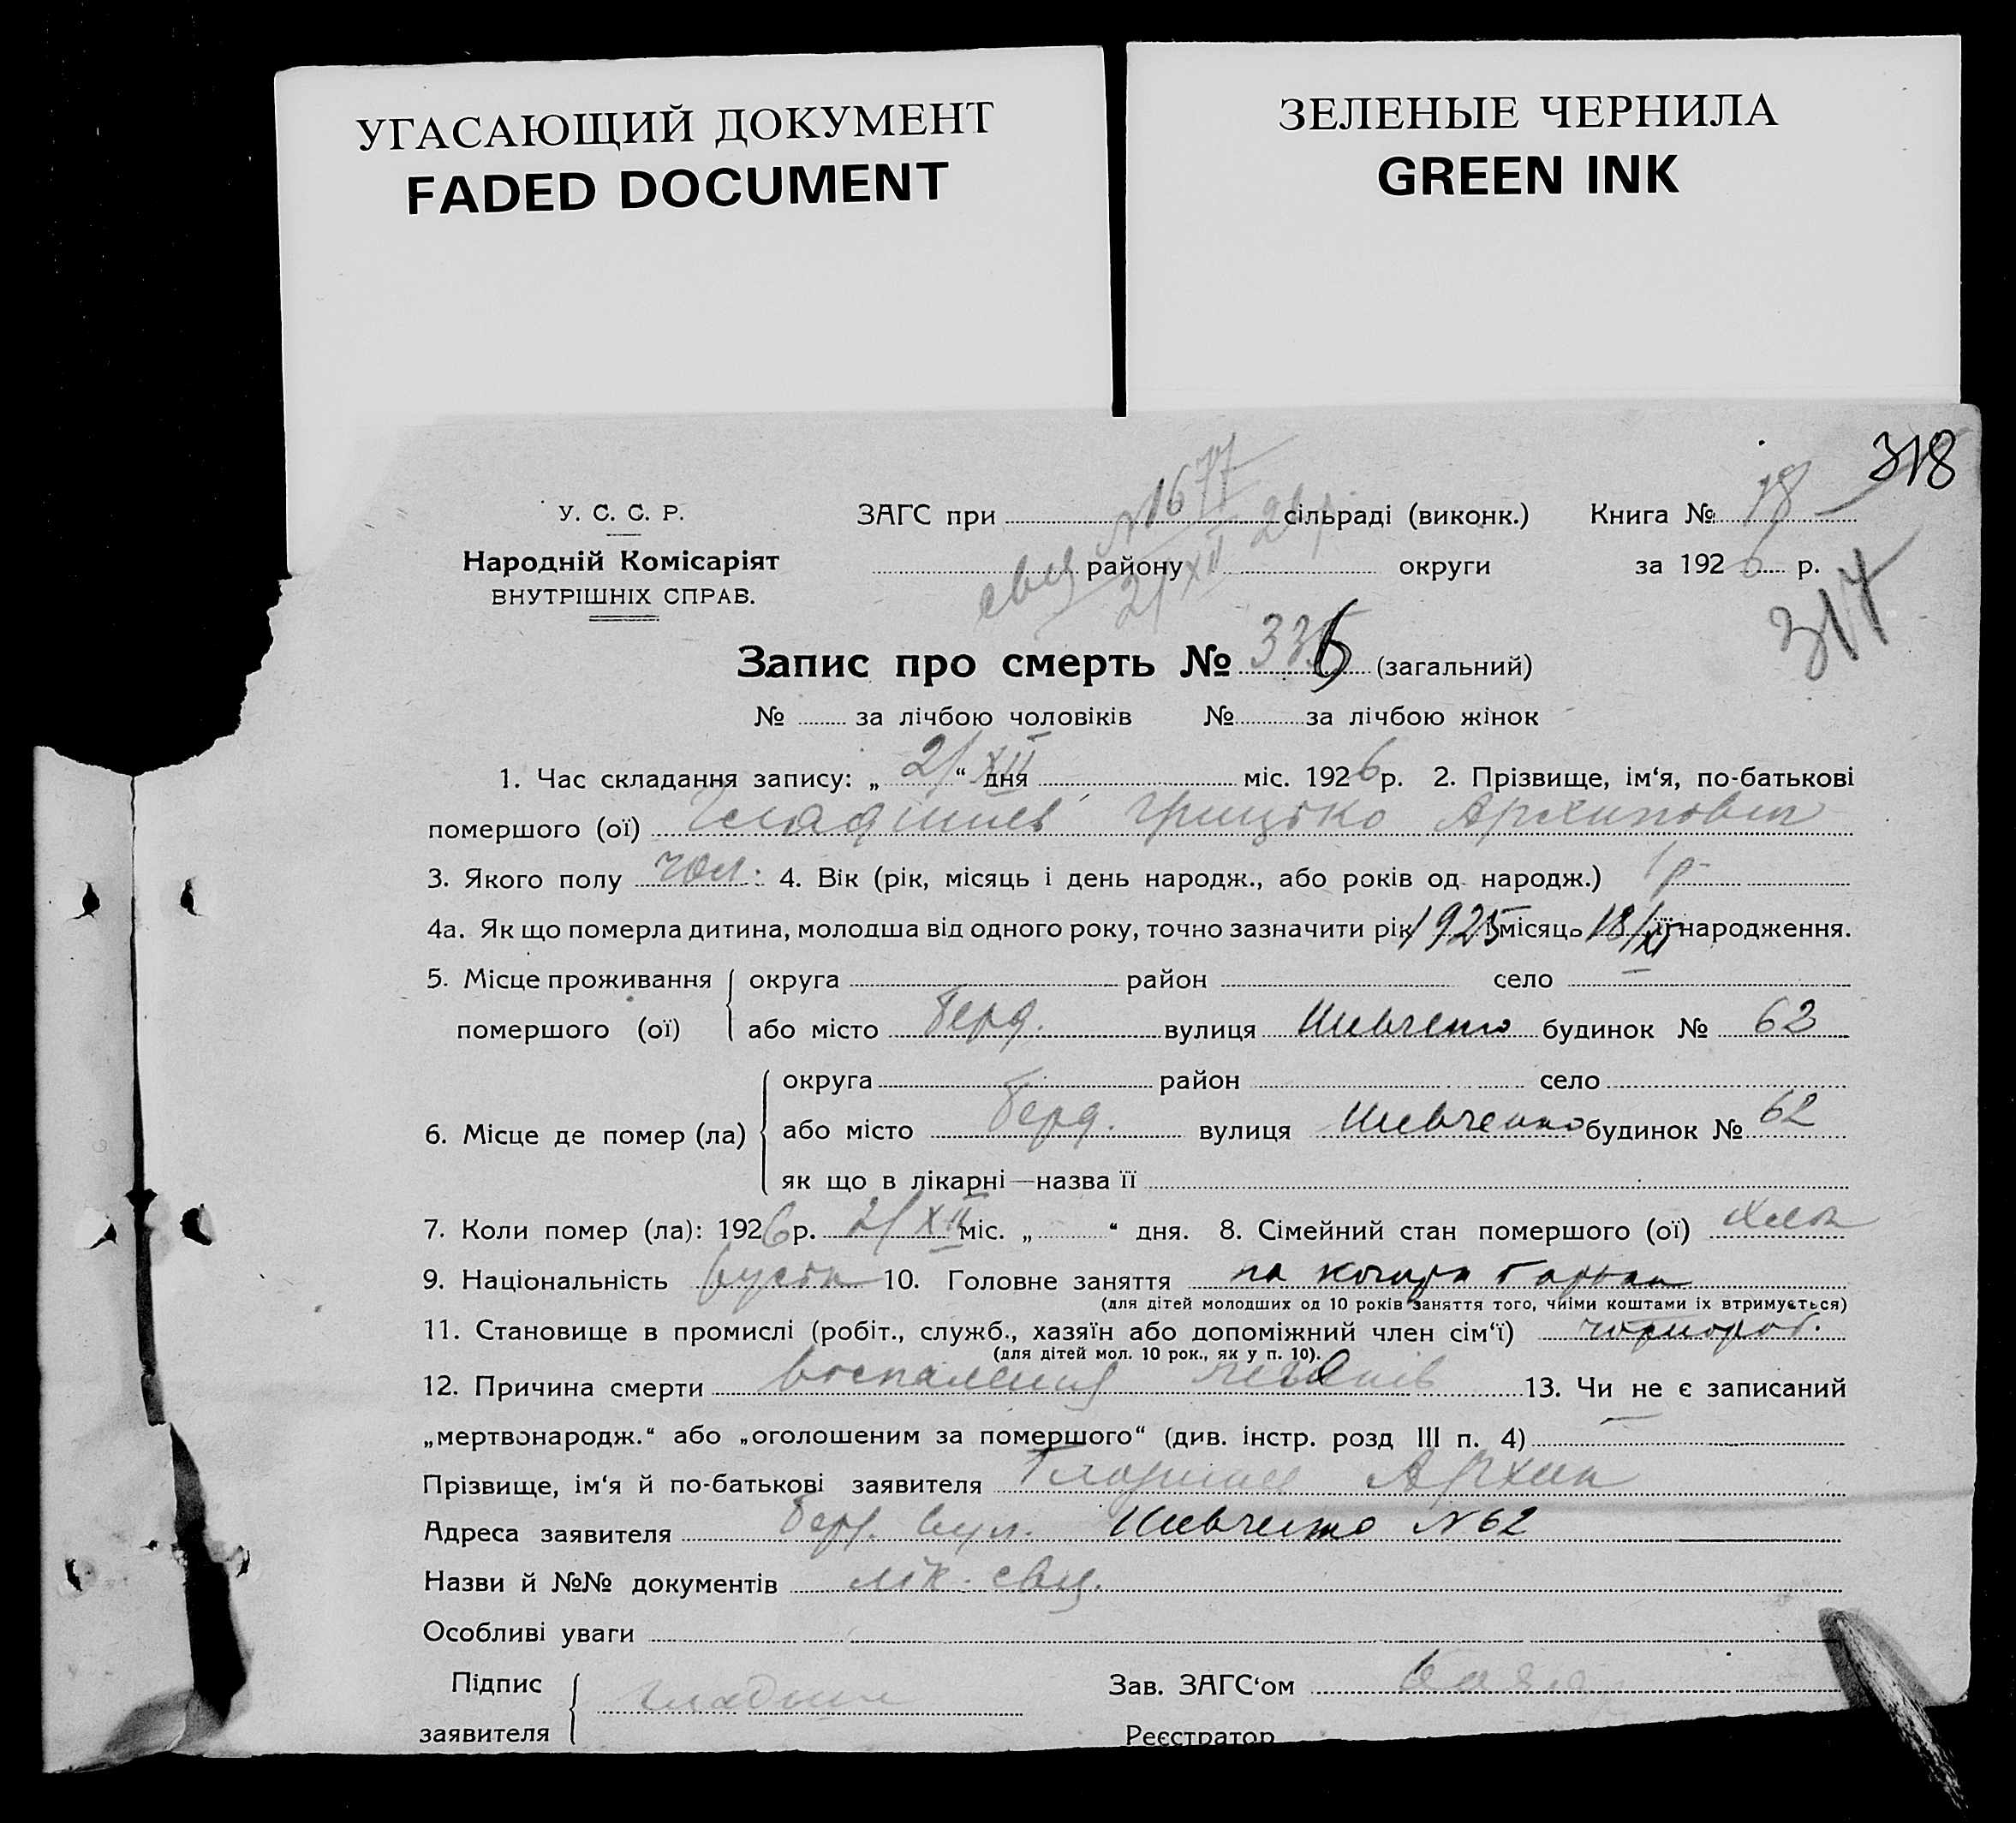 УГАСАЮЩИЙ ДОКУМЕНТ
FADED DOCUMENT
ЗЕЛЕНЫЕ ЧЕРНИЛА
GREEN INK
318
У. С. С. Р.
Народній Комісаріят
ВНУТРІШНІХ СПРАВ.
ЗАГС при № 1677 сільраді (виконк.)
району 21/XII округи
Книга № 18
за 1926 р.
317
Запис про смерть № 336 (загальний)
№ за лічбою чоловіків № за лічбою жінок
1. Час складання запису: „21/XII“ дня міс. 1926 р. 2. Прізвище, ім‘я, по-батькові
помершого (ої) Грицько Архипович
3. Якого полу чол. 4. Вік (рік, місяць і день народж., або років од народж.) 1 р
4а. Як що померла дитина, молодша від одного року, точно зазначити рік 1925 місяць 18/XI її народження.
5. Місце проживання помершого (ої) округа район село
або місто Берд. вулиця Шевченко будинок № 62
6. Місце де помер (ла) округа район село
або місто Берд. вулиця Шевченко будинок № 62
як що в лікарні—назва її
7. Коли помер (ла): 1926 р. 21/XII міс. „ “ дня. 8. Сімейний стан помершого (ої)
9. Національність 10. Головне заняття на
(для дітей молодших од 10 років заняття того, чиїми коштами їх втримується)
11. Становище в промислі (робіт., служб., хазяїн або допоміжний член сім‘ї) чорнороб.
(для дітей мол. 10 рок., як у п. 10).
12. Причина смерти воспалення 13. Чи не є записаний
„мертвонародж.“ або „оголошеним за помершого“ (див. інстр. розд III п. 4) —
Прізвище, ім‘я й по-батькові заявителя Архип
Адреса заявителя Берд. вул. Шевченко № 62
Назви й №№ документів лік. свід.
Особливі уваги
Підпис
заявителя
Зав. ЗАГС‘ом
Реєстратор